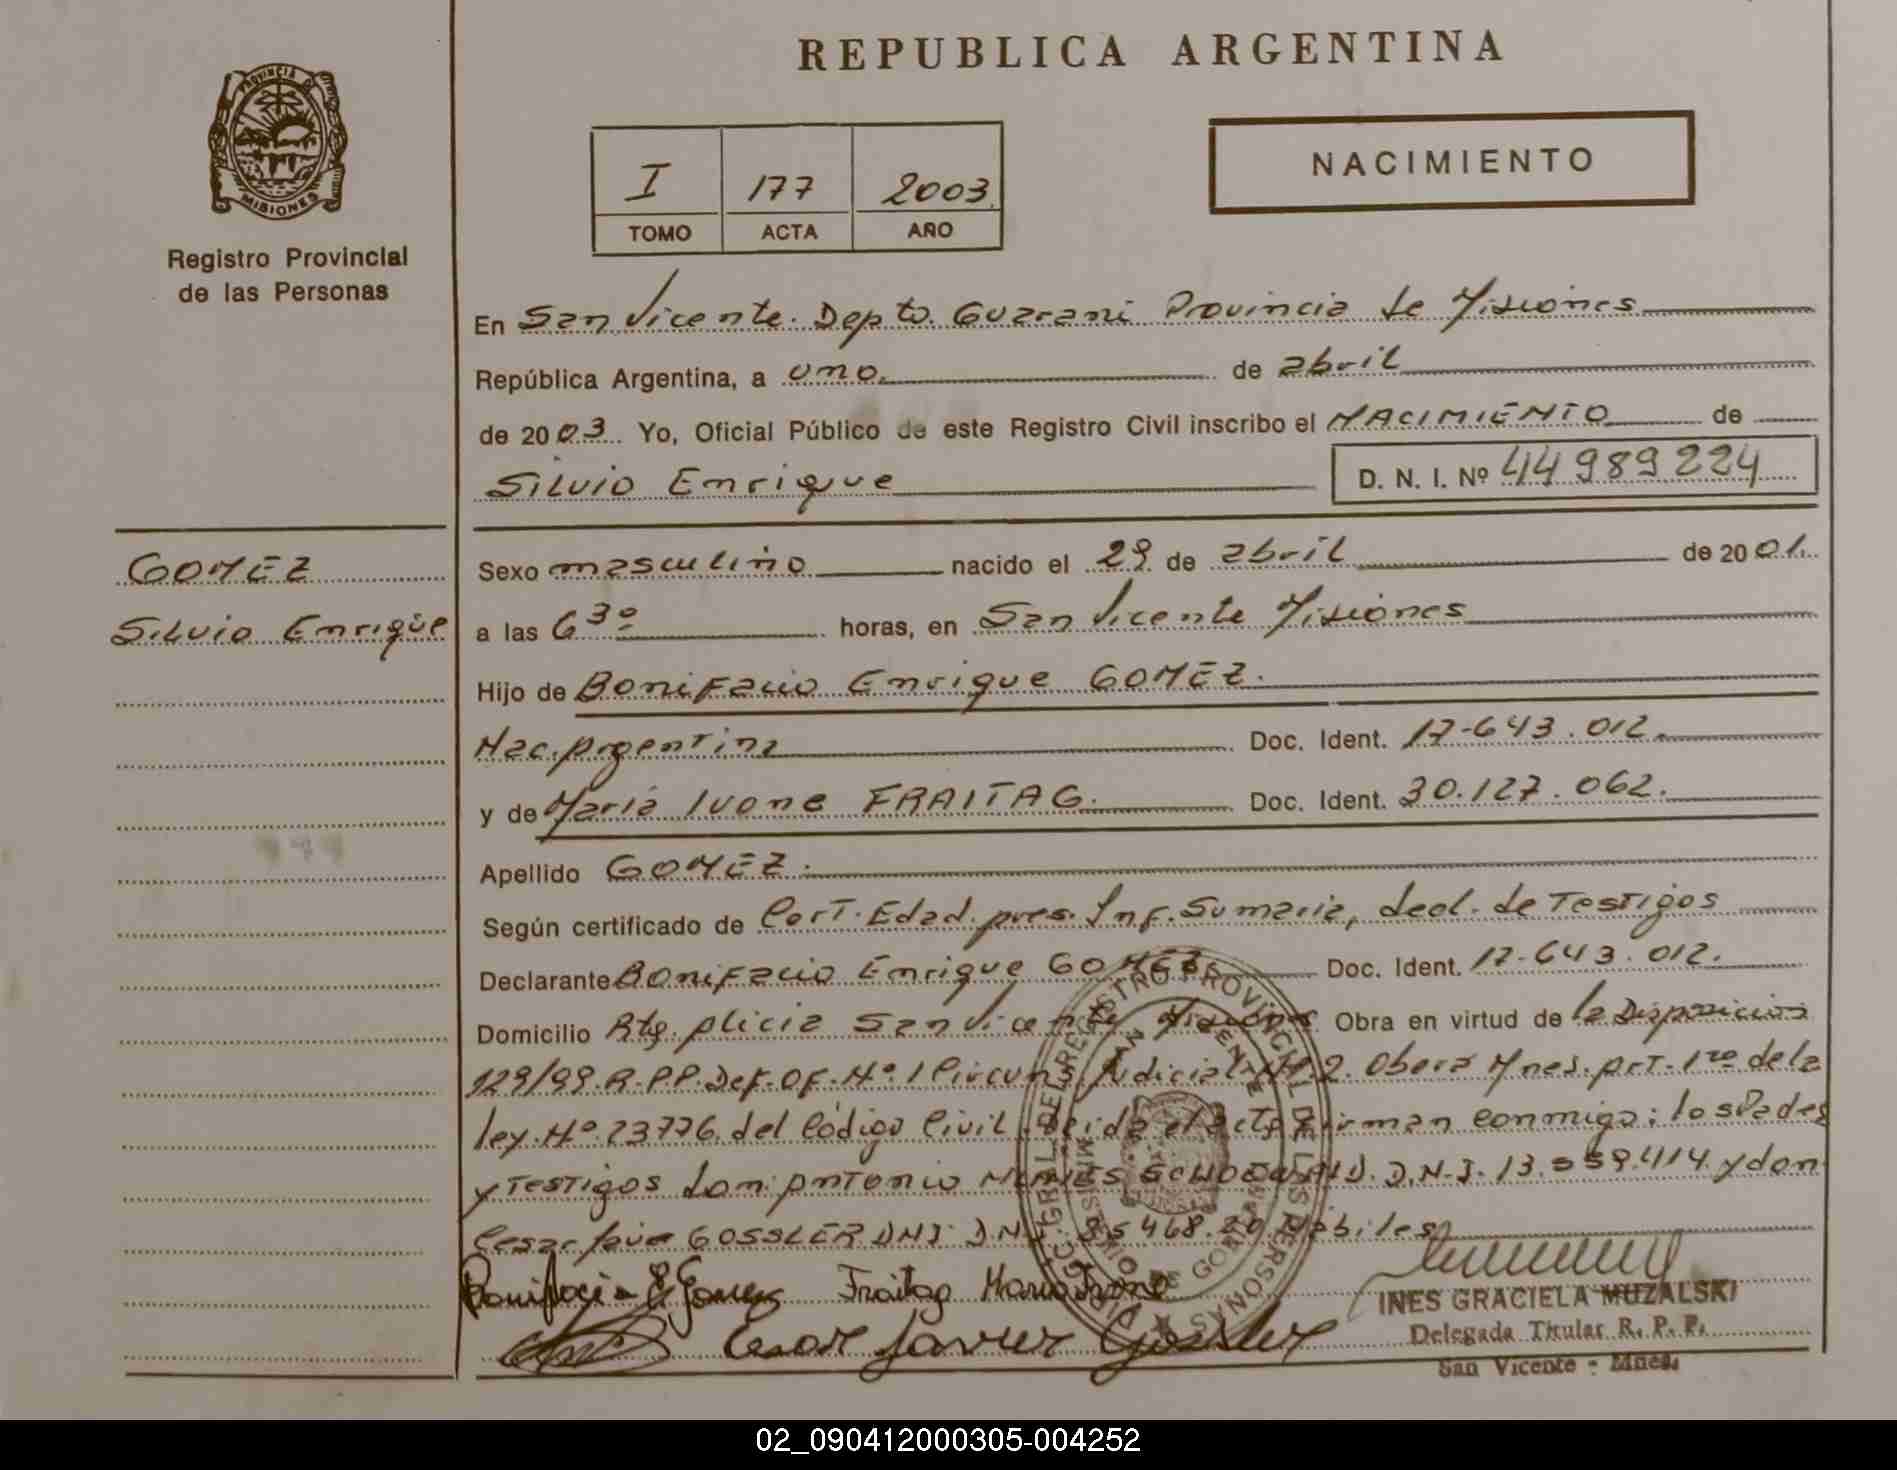 PROVINCIA DE
MISIONES
Registro Provincial
de las Personas
REPUBLICA ARGENTINA
NACIMIENTO
I 177 2003
TOMO ACTA AÑO
En San Vicente. Depto. Guarani Provincia de Misiones
República Argentina, a uno. de abril
de 2003 Yo, Oficial Público de este Registro Civil inscribo el NACIMIENTO de
Silvio Enrique D. N. I. Nº 44989224
GOMEZ
Silvio Enrique
Sexo masculino nacido el 29 de abril de 2001.
a las 6 30 horas, en San Vicente Misiones
Hijo de Bonifacio Enrique GOMEZ.
Nac. Argentina Doc. Ident. 17-643.012.
y de Maria Ivone FRAITAG. Doc. Ident. 30.127.062.
Apellido GOMEZ.
Según certificado de Cert. Edad. pres. Inf. Sumaria, decl. de Testigos
Declarante Bonifacio Enrique GOMEZ Doc. Ident. 17-643.012.
Domicilio Rtg. Alicia San Vicente Misiones Obra en virtud de la Disposicion
129/99. R.P.P. Def. Of. Nº 1 Circun. Judicial Nº 2. Obera Mnes. Art. 1ro de la
ley. Nº 23776. del Código Civil. Leida el acta firman conmigo: los Padres
y Testigos don: Antonio D.N.I. 13.559.414. y don
Cesar Javier GOSSLER DNI. D.N.I. Habiles
Bonifacio E Gomez Freitag Maria Ivone
Cesar Javier Gossler
INES GRACIELA MUZALSKI
Delegada Titular R. P. P.
San Vicente - Mnes.
REGISTRO PROVINCIAL DE LAS PERSONAS
SAN VICENTE
MISIONES
02_090412000305-004252